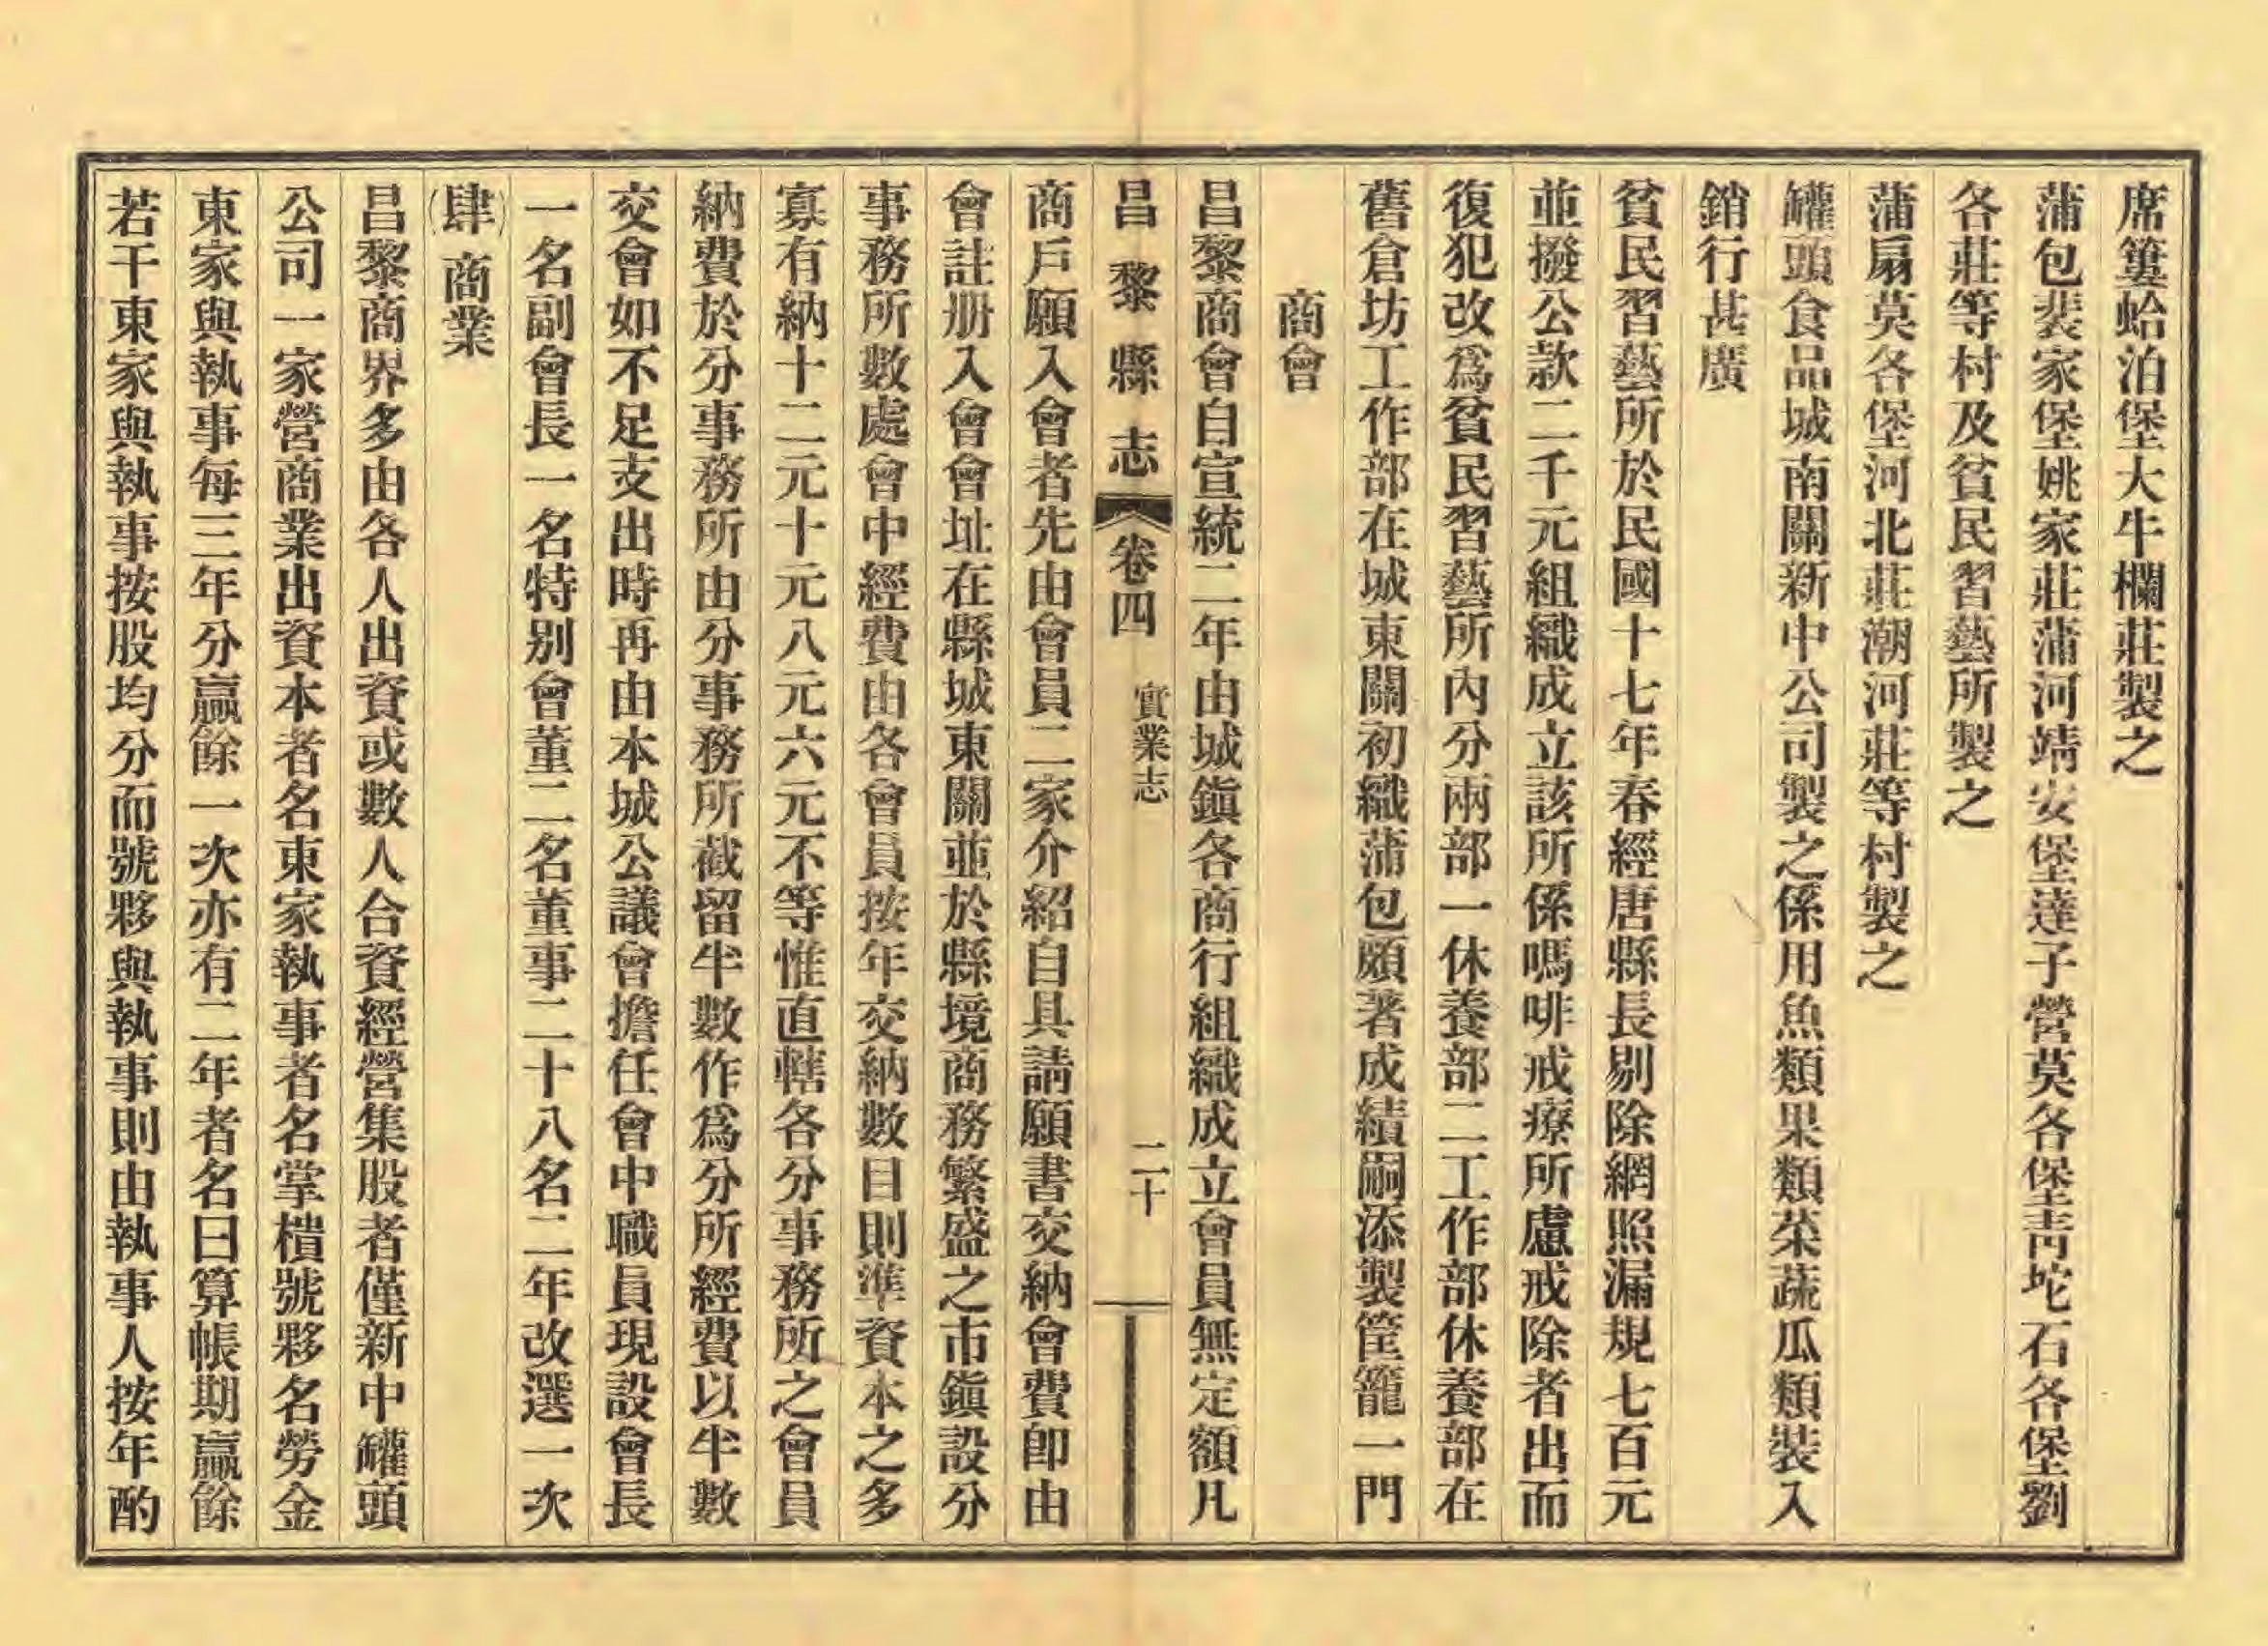 席簍蛤泊堡大牛欄莊製之
蒲包裴家堡姚家莊蒲河靖安堡達子營莫各堡靑坨石各堡劉
各莊等村及貧民習藝所製之
蒲扇莫各堡河北莊潮河莊等村製之
罐頭食品城南關新中公司製之係用魚類果類菜蔬瓜類裝入
銷行甚廣
貧民習藝所於民國十七年春經唐縣長剔除網照漏規七百元
並撥公款二千元組織成立該所係嗎啡戒療所慮戒除者出而
復犯改爲貧民習藝所內分兩部一休養部二工作部休養部在
舊倉坊工作部在城東關初織蒲包頗著成績嗣添製筐籠一門
商會
昌黎商會自宣統二年由城鎭各商行組織成立會員無定額凡
昌黎縣志 卷四 實業志 二十
商戶願入會者先由會員二家介紹自具請願書交納會費卽由
會註册入會會址在縣城東關並於縣境商務繁盛之市鎭設分
事務所數處會中經費由各會員按年交納數目則準資本之多
寡有納十二元十元八元六元不等惟直轄各分事務所之會員
納費於分事務所由分事務所截留半數作爲分所經費以半數
交會如不足支出時再由本城公議會擔任會中職員現設會長
一名副會長一名特别會董二名董事二十八名二年改選一次
(肆)商業
昌黎商界多由各人出資或數人合資經營集股者僅新中罐頭
公司一家營商業出資本者名東家執事者名掌櫃號夥名勞金
東家與執事每三年分贏餘一次亦有二年者名曰算帳期贏餘
若干東家與執事按股均分而號夥與執事則由執事人按年酌